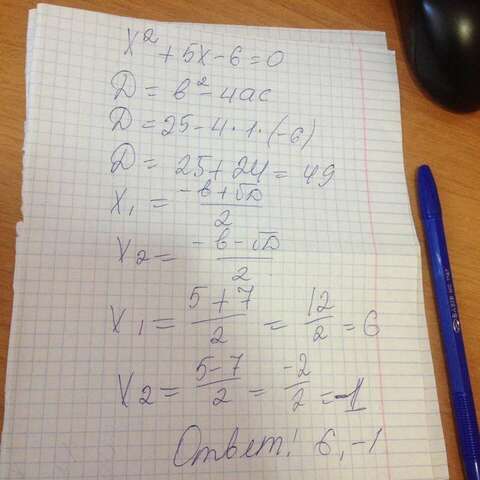 x² + 5x - 6 = 0
D = в² - 4ac
D = 25 - 4 · 1 · (-6)
D = 25 + 24 = 49
x₁ = (-в + √D)/2
x₂ = (-в - √D)/2
x₁ = (5 + 7)/2 = 12/2 = 6
x₂ = (5 - 7)/2 = -2/2 = -1
Ответ! 6, -1